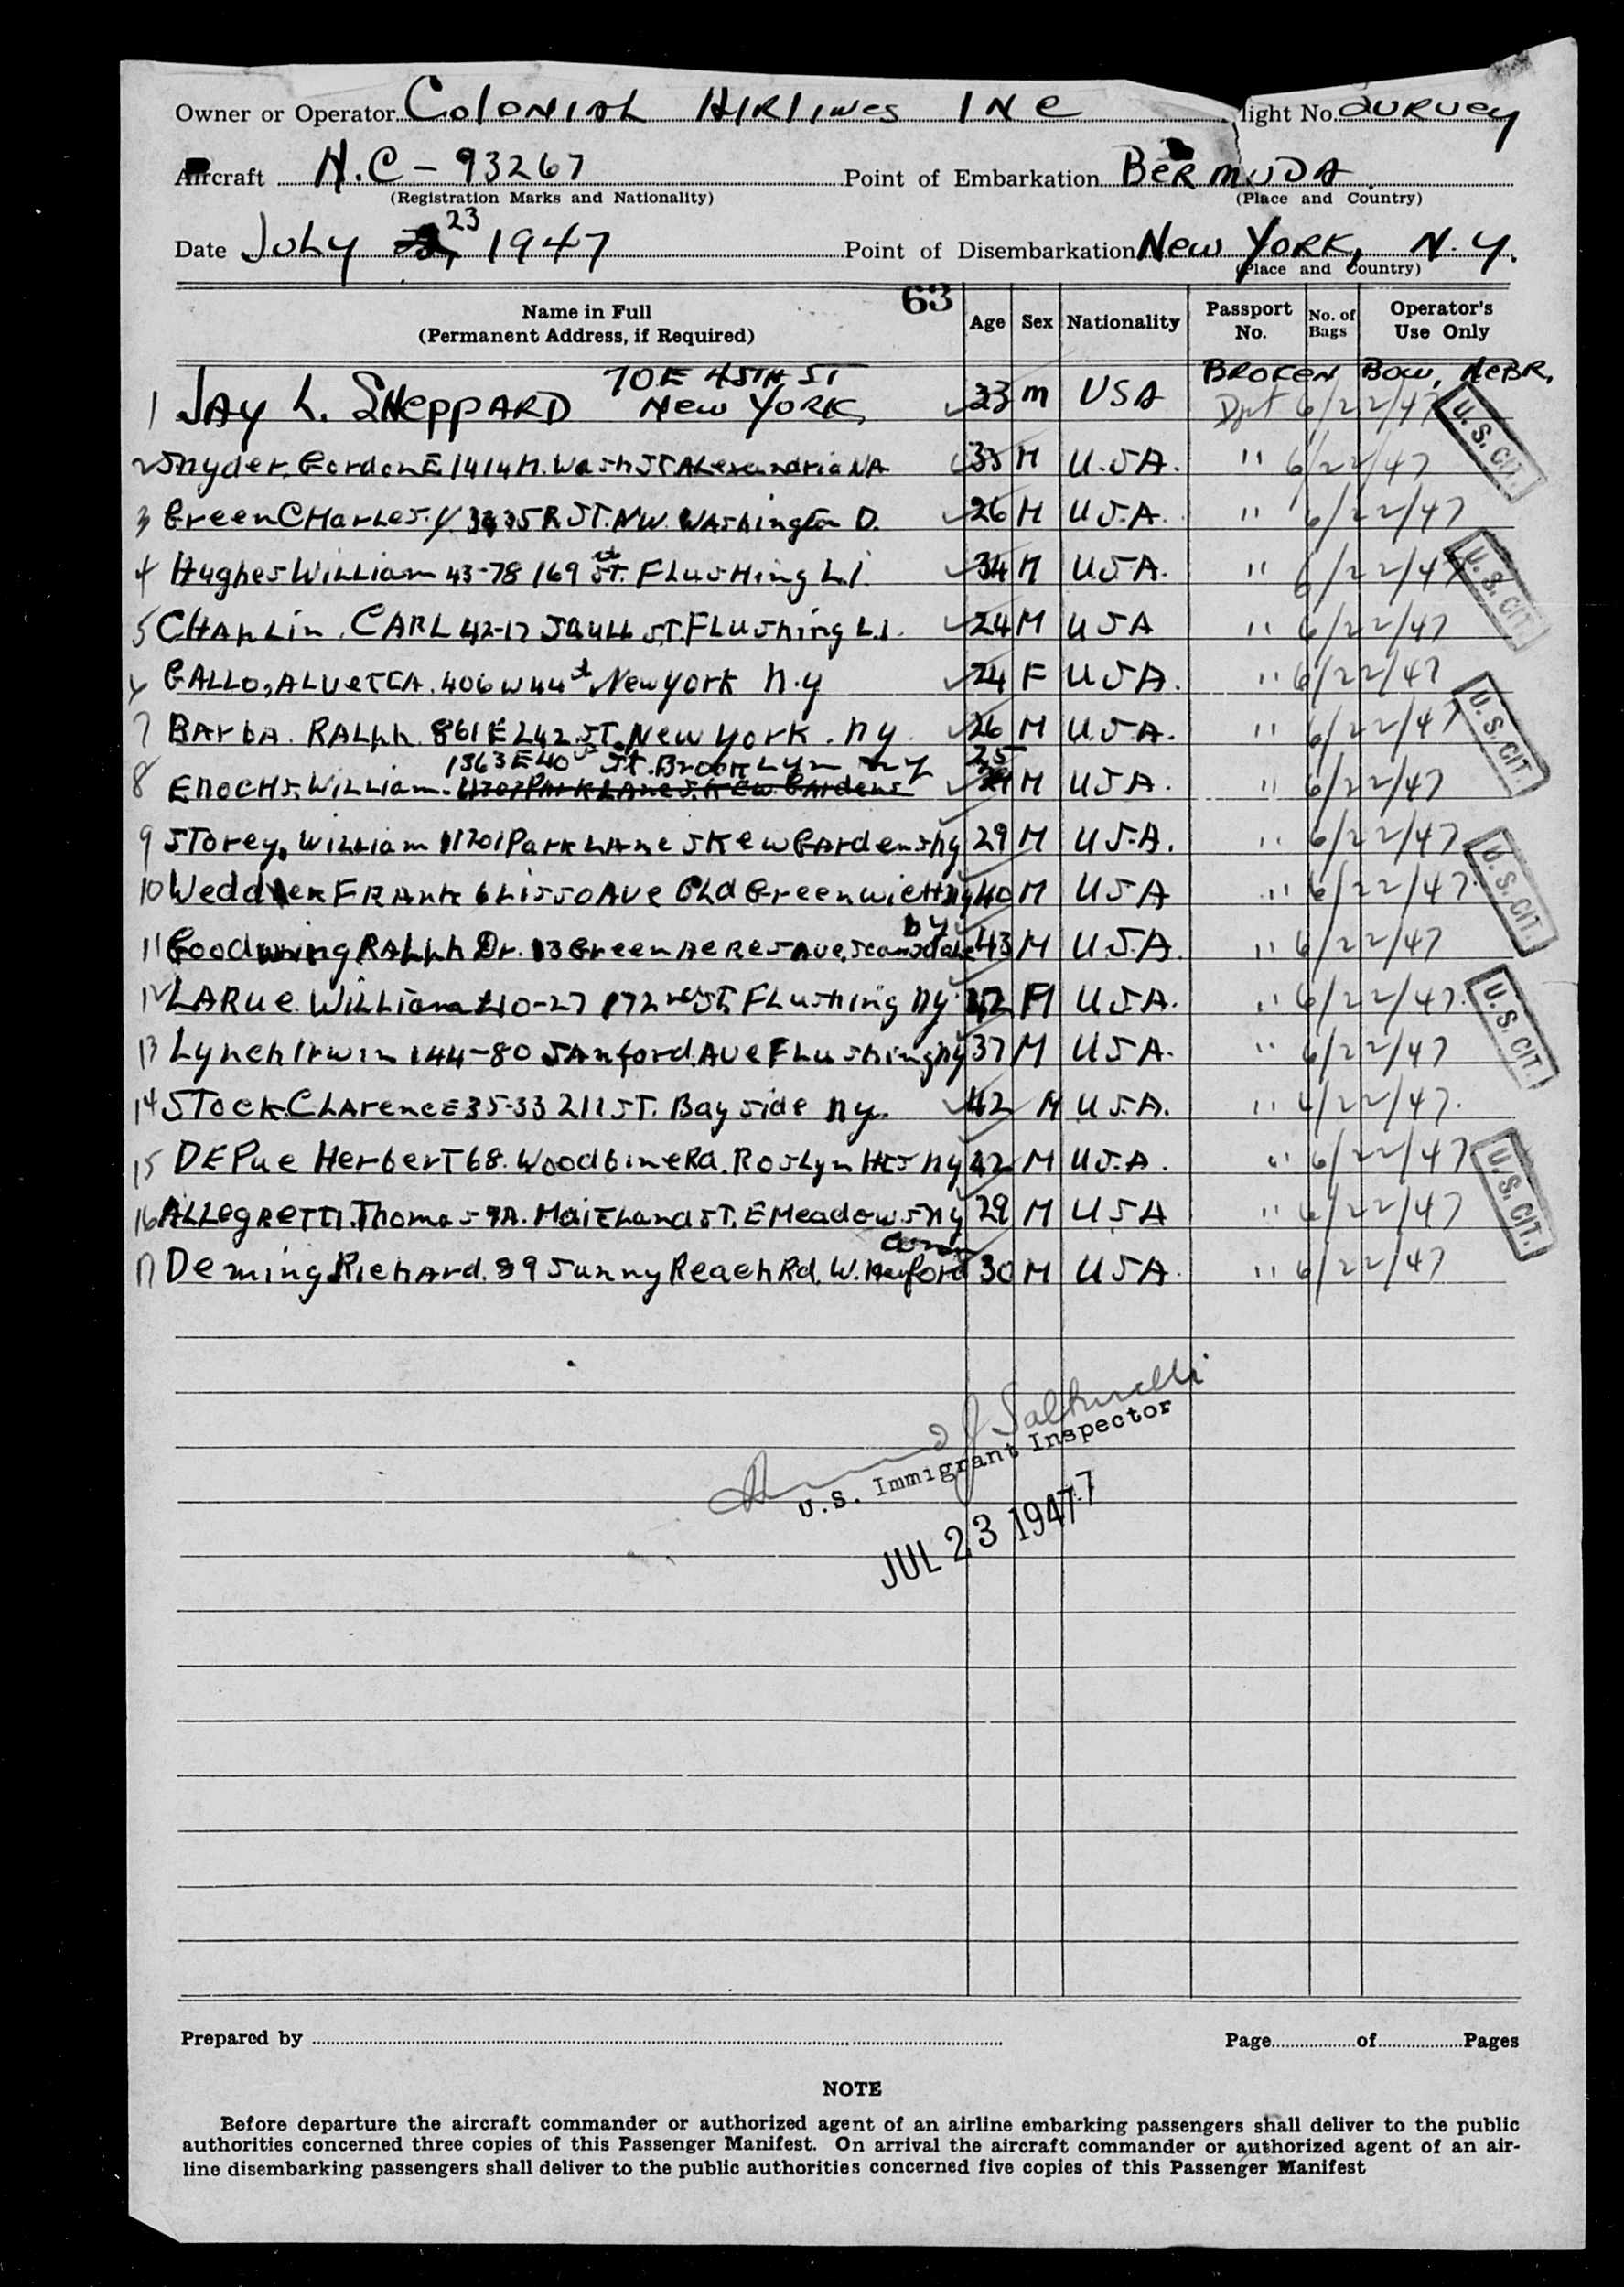 Owner or Operator COLONIAL AIRLINES INC light No. SURVEY
Aircraft N.C-93267 Point of Embarkation BERMUDA
(Registration Marks and Nationality) (Place and Country)
Date JULY 23, 1947 Point of Disembarkation NEW YORK, N.Y.
(Place and Country)
63
Name in Full Age Sex Nationality Passport No. No. of Bags Operator's Use Only
(Permanent Address, if Required)
BROKEN BOW, NEBR.
1 JAY L. SHEPPARD 70E 45TH ST NEW YORK 33 M USA Dpt 6/22/47
2 Snyder. Gordon E 1414 N. Wash ST Alexandria VA 33 M U.S.A. " 6/22/47
3 Green CHarles. 3435 R ST. NW. WAshington D. 26 M U.S.A. " 6/22/47
4 Hughes William 43-78 169 st. FLusHing L.I. 34 M U.S.A. " 6/22/47
5 CHAPLin. CARL 42-17 SAULL ST. FLUshing L.I. 24 M USA " 6/22/47
GALLO, ALVETTA. 406 W 44 st New york n.y 24 F U.S.A. " 6/22/47
7 BArbA. RALph. 861 E 242. ST. New york. ny. 26 M U.S.A. " 6/22/47
1363 E 40 St. Brooklyn ny 25
8 ENOCHS, WiLLiam. M U.S.A. " 6/22/47
9 STorey, WiLLiam 11701 Park LAne S Kew GArdens ny 29 M U.S.A. " 6/22/47
10 FRAnk 6 Ave OLd Greenwich 40 M USA " 6/22/47
11 RALph Dr. 13 Green ACRES AVe. Scarsdale ny 43 M U.S.A. " 6/22/47
12 LARue. WiLLiam 40-27 172nd ST. FLushing ny. 42 M U.S.A. " 6/22/47
13 Lynch Irwin 144-80 SAnford. AVe FLushing ny 37 M USA. " 6/22/47
14 STock. CLArence 35-33 211 ST. Bayside ny. 42 M U.S.A. " 6/22/47.
15 DEPue HerberT 68. Woodbine Rd. Roslyn HTS ny 42 M U.S.A. " 6/22/47
16 ALLegRetti. Thomas 9A. MaiTLand ST. E Meadows ny 29 M USA " 6/22/47
Conn
17 Deming Richard. 39 Sunny Reach Rd. W. Harford 30 M USA. " 6/22/47
U.S. CIT.
U.S. CIT.
U.S. CIT.
U.S. CIT.
U.S. CIT.
U.S. CIT.
U.S. Immigrant Inspector
JUL 23 1947
Prepared by Page of Pages
NOTE
Before departure the aircraft commander or authorized agent of an airline embarking passengers shall deliver to the public
authorities concerned three copies of this Passenger Manifest. On arrival the aircraft commander or authorized agent of an air-
line disembarking passengers shall deliver to the public authorities concerned five copies of this Passenger Manifest